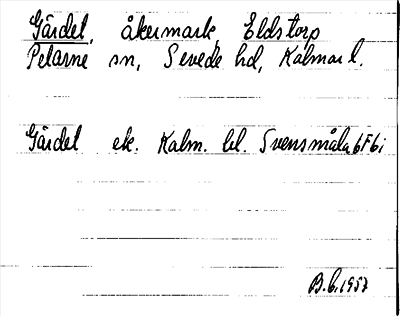 Gärdel, åkermark, Eldstorp
Pelarne sn, Sevede hd, Kalmar l.
Gärdel ek. Kalm. bl. Svensmåla 6F6i
B.b. 1957